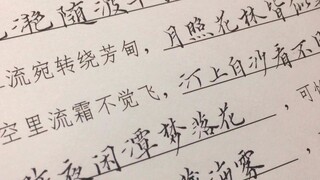 滟随波千
流宛转绕芳甸，月照花林皆似
空里流霜不觉飞，汀上白沙看不
昨夜闲潭梦落花，可